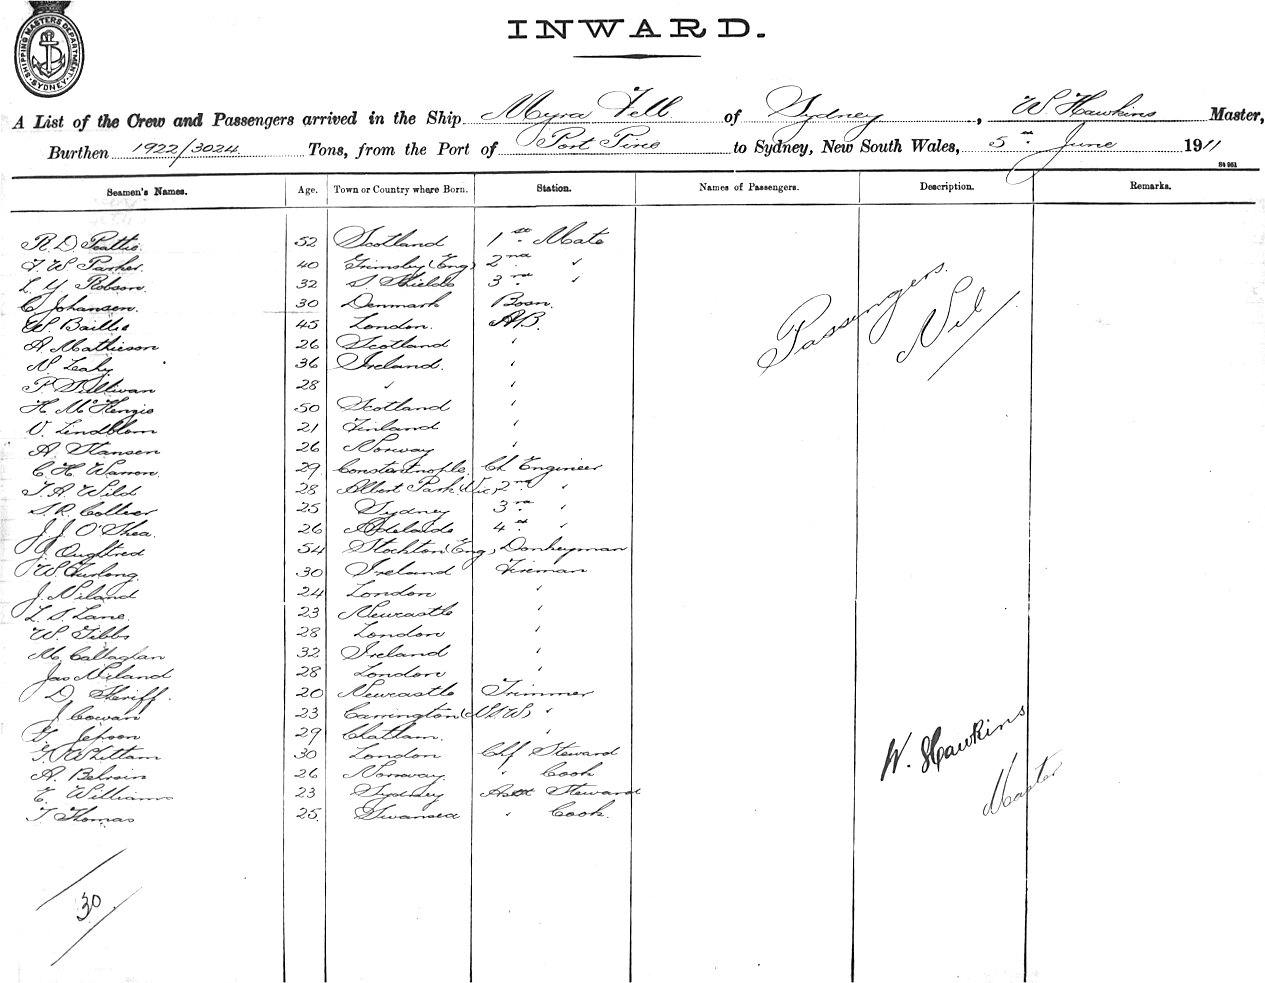 SHIPPING MASTERS DEPARTMENT
SYDNEY
INWARD.
A List of the Crew and Passengers arrived in the Ship Myra Fell of Sydney, W. Hawkins Master,
Burthen 1922/3024 Tons, from the Port of Port Pirie to Sydney, New South Wales, 5th June 1911
St 951
Seamen's Names. Age. Town or Country where Born. Station. Names of Passengers. Description. Remarks.
R. D. Peattie 52 Scotland 1st Mate
F. W. Parker 40 Grimsby (Eng) 2nd "
L. Y. Robson 32 S. Shields 3rd "
C. Johansen 30 Denmark Bosn.
W. Baillie 45 London. AB.
A. Mathieson 26 Scotland "
N. Leahy 36 Ireland. "
P. Sullivan 28 " "
H. McKenzie 50 Scotland "
V. Lindblom 21 Finland "
A. Hansen 26 Norway "
C. H. Warron 29 Constantnople. Ch Engineer
T. A. Wild 28 Albert Park (Vic) 2nd "
S. R. Collier 25 Sydney 3rd "
J. J. O'Shea. 26 Adelaide 4th "
J. Oughtred 54 Stockton (Eng) Donkeyman
W. Furlong. 30 Ireland Fireman
J. Niland 24 London "
L. S. Lane. 23 Newcastle "
W. Gibbs 28 London "
M. Callaghan 32 Ireland "
Jas Niland 28 London "
D. Sheriff. 20 Newcastle Trimmer
J. Cowan 23 Carrington (N.S.W) "
G. Jepson 29 Chatham. "
G. Whittam 30 London Chf Steward
A. 26 Norway. " Cook
E. Williams 23 Sydney Asst Steward
T. Thomas 25. Swansea " Cook.
Passengers.
Nil
W. Hawkins
Master
30